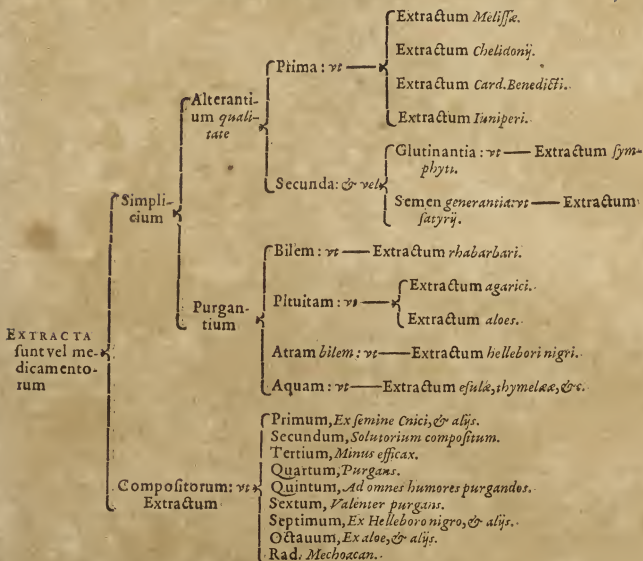 EXTRACTA
ſunt vel me-
dicamento-
rum
Simpli-
cium
Alteranti-
um qualitate
qualitate
Prima: vt
Extractum Meliſſæ.
Extractum Chelidonij.
Extractum Card. Benedicti.
Extractum Iuniperi.
Secunda: & vel
Glutinantia: vt — Extractum ſym-
phyti.
Semen generantia: vt — Extractum
ſatyrij.
Purgan-
tium
Bilem: vt — Extractum rhabarbari.
Pituitam: vt
Extractum agarici.
Extractum aloes.
Atram bilem: vt — Extractum hellebori nigri.
Aquam: vt — Extractum eſulæ, thymelææ, &c.
Compoſitorum: vt
Extractum
Primum, Ex ſemine Cnici, & alijs.
Secundum, Solutorium compoſitum.
Tertium, Minus efficax.
Quartum, Purgans.
Quintum, Ad omnes humores purgandos.
Sextum, Valenter purgans.
Septimum, Ex Helleboro nigro, & alijs.
Octauum, Ex aloe, & alijs.
Rad. Mechoacan.